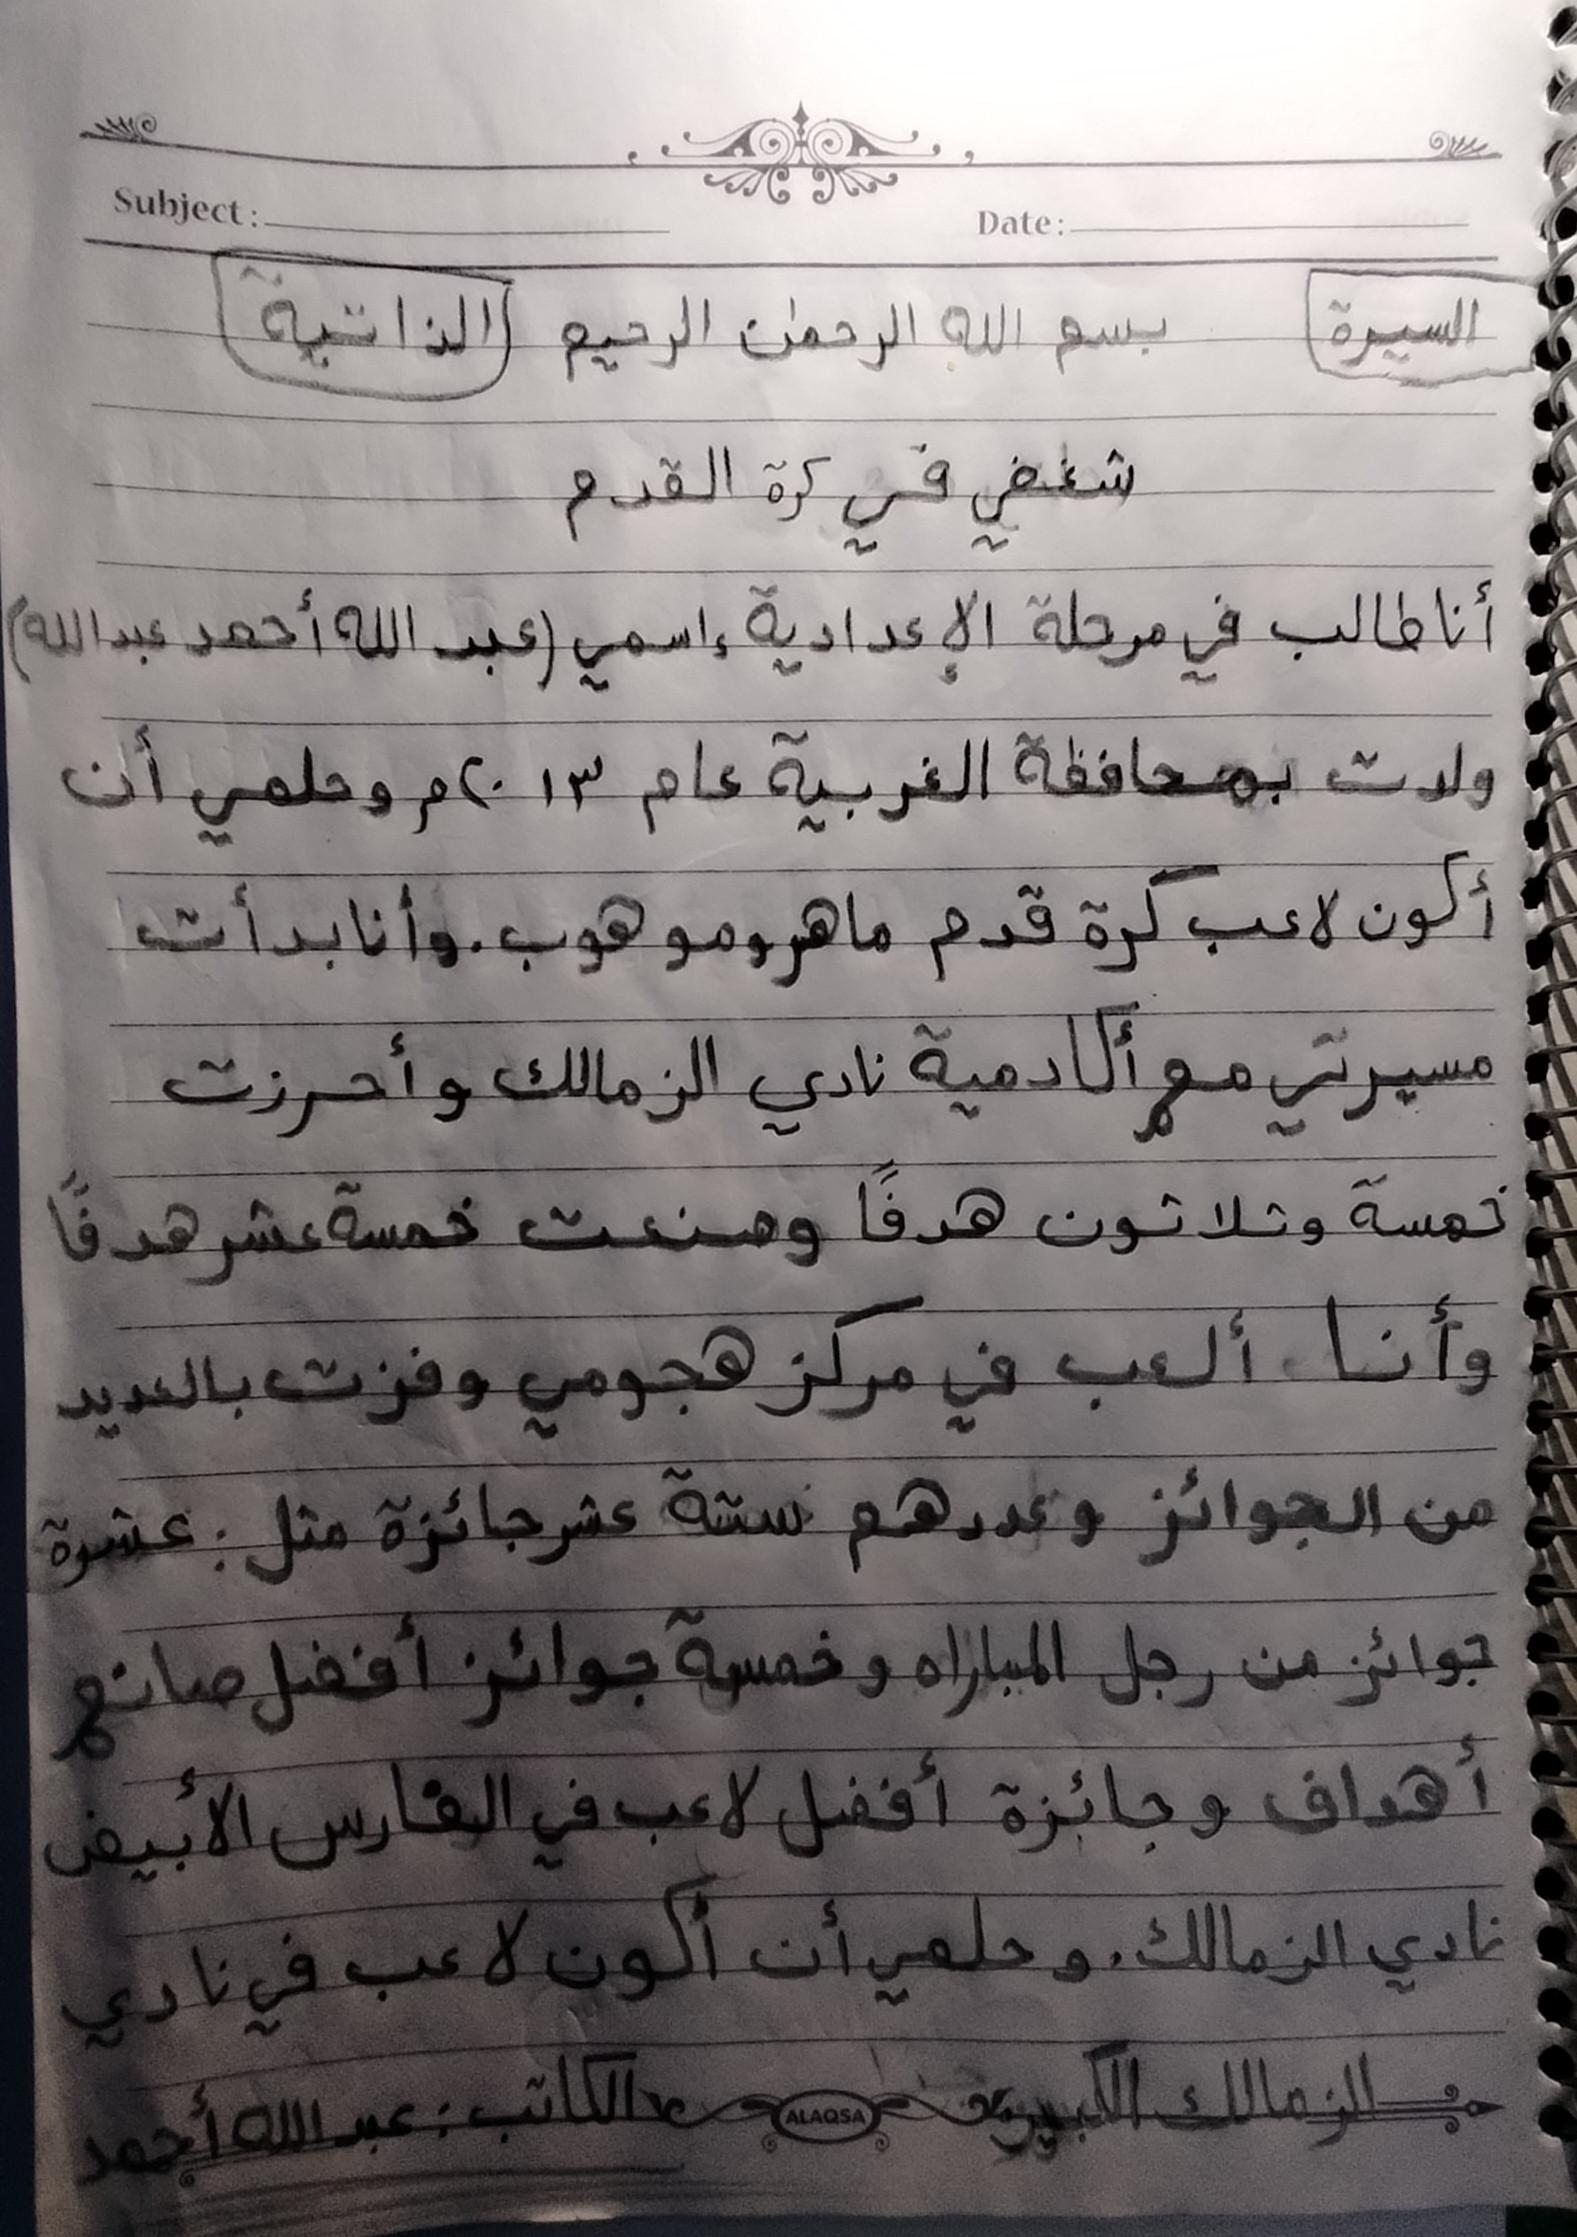 Subject: Date:
السيرة بسم الله الرحمن الرحيم الذاتية
شغفي في كرة القدم
أنا طالب في مرحلة الإعدادية، إسمي (عبد الله أحمد عبد الله)
ولدت بمحافظة الغربية عام ٢٠١٣م وحلمي أن
أكون لاعب كرة قدم ماهر وموهوب. وأنا بدأت
مسيرتي مع أكادمية نادي الزمالك وأحرزت
خمسة وثلاثون هدفًا وصنعت خمسة عشر هدفًا
وأنا ألعب في مركز هجومي وفزت بالعديد
من الجوائز وعددهم ستة عشر جائزة مثل: عشرة
جوائز من رجل المباراه وخمسة جوائز أفضل صانع
أهداف وجائزة أفضل لاعب في الفارس الأبيض
نادي الزمالك. وحلمي أن أكون لاعب في نادي
الزمالك الكبير ALAQSA الكاتب: عبد الله أحمد